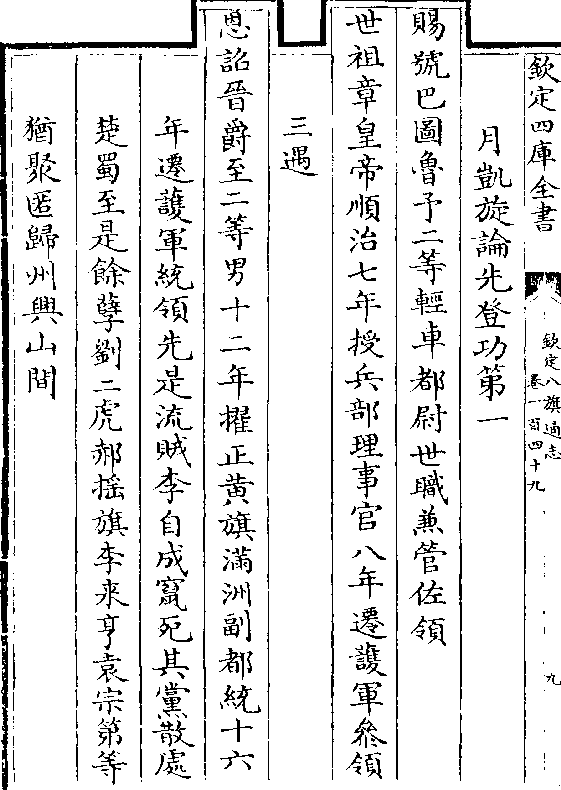 欽定四庫全書
欽定八旗通志
卷一百四十九
九
月凱旋論先登功第一
賜號巴圖魯予二等輕車都尉世職兼管佐領
世祖章皇帝順治七年授兵部理事官八年遷護軍叅領
三遇
恩詔晉爵至二等男十二年擢正黄旗滿洲副都統十六
年遷護軍統領先是流賊李自成竄死其黨散處
楚蜀至是餘孽劉二虎郝揺旗李來亨袁宗第等
猶聚匿歸州興山間